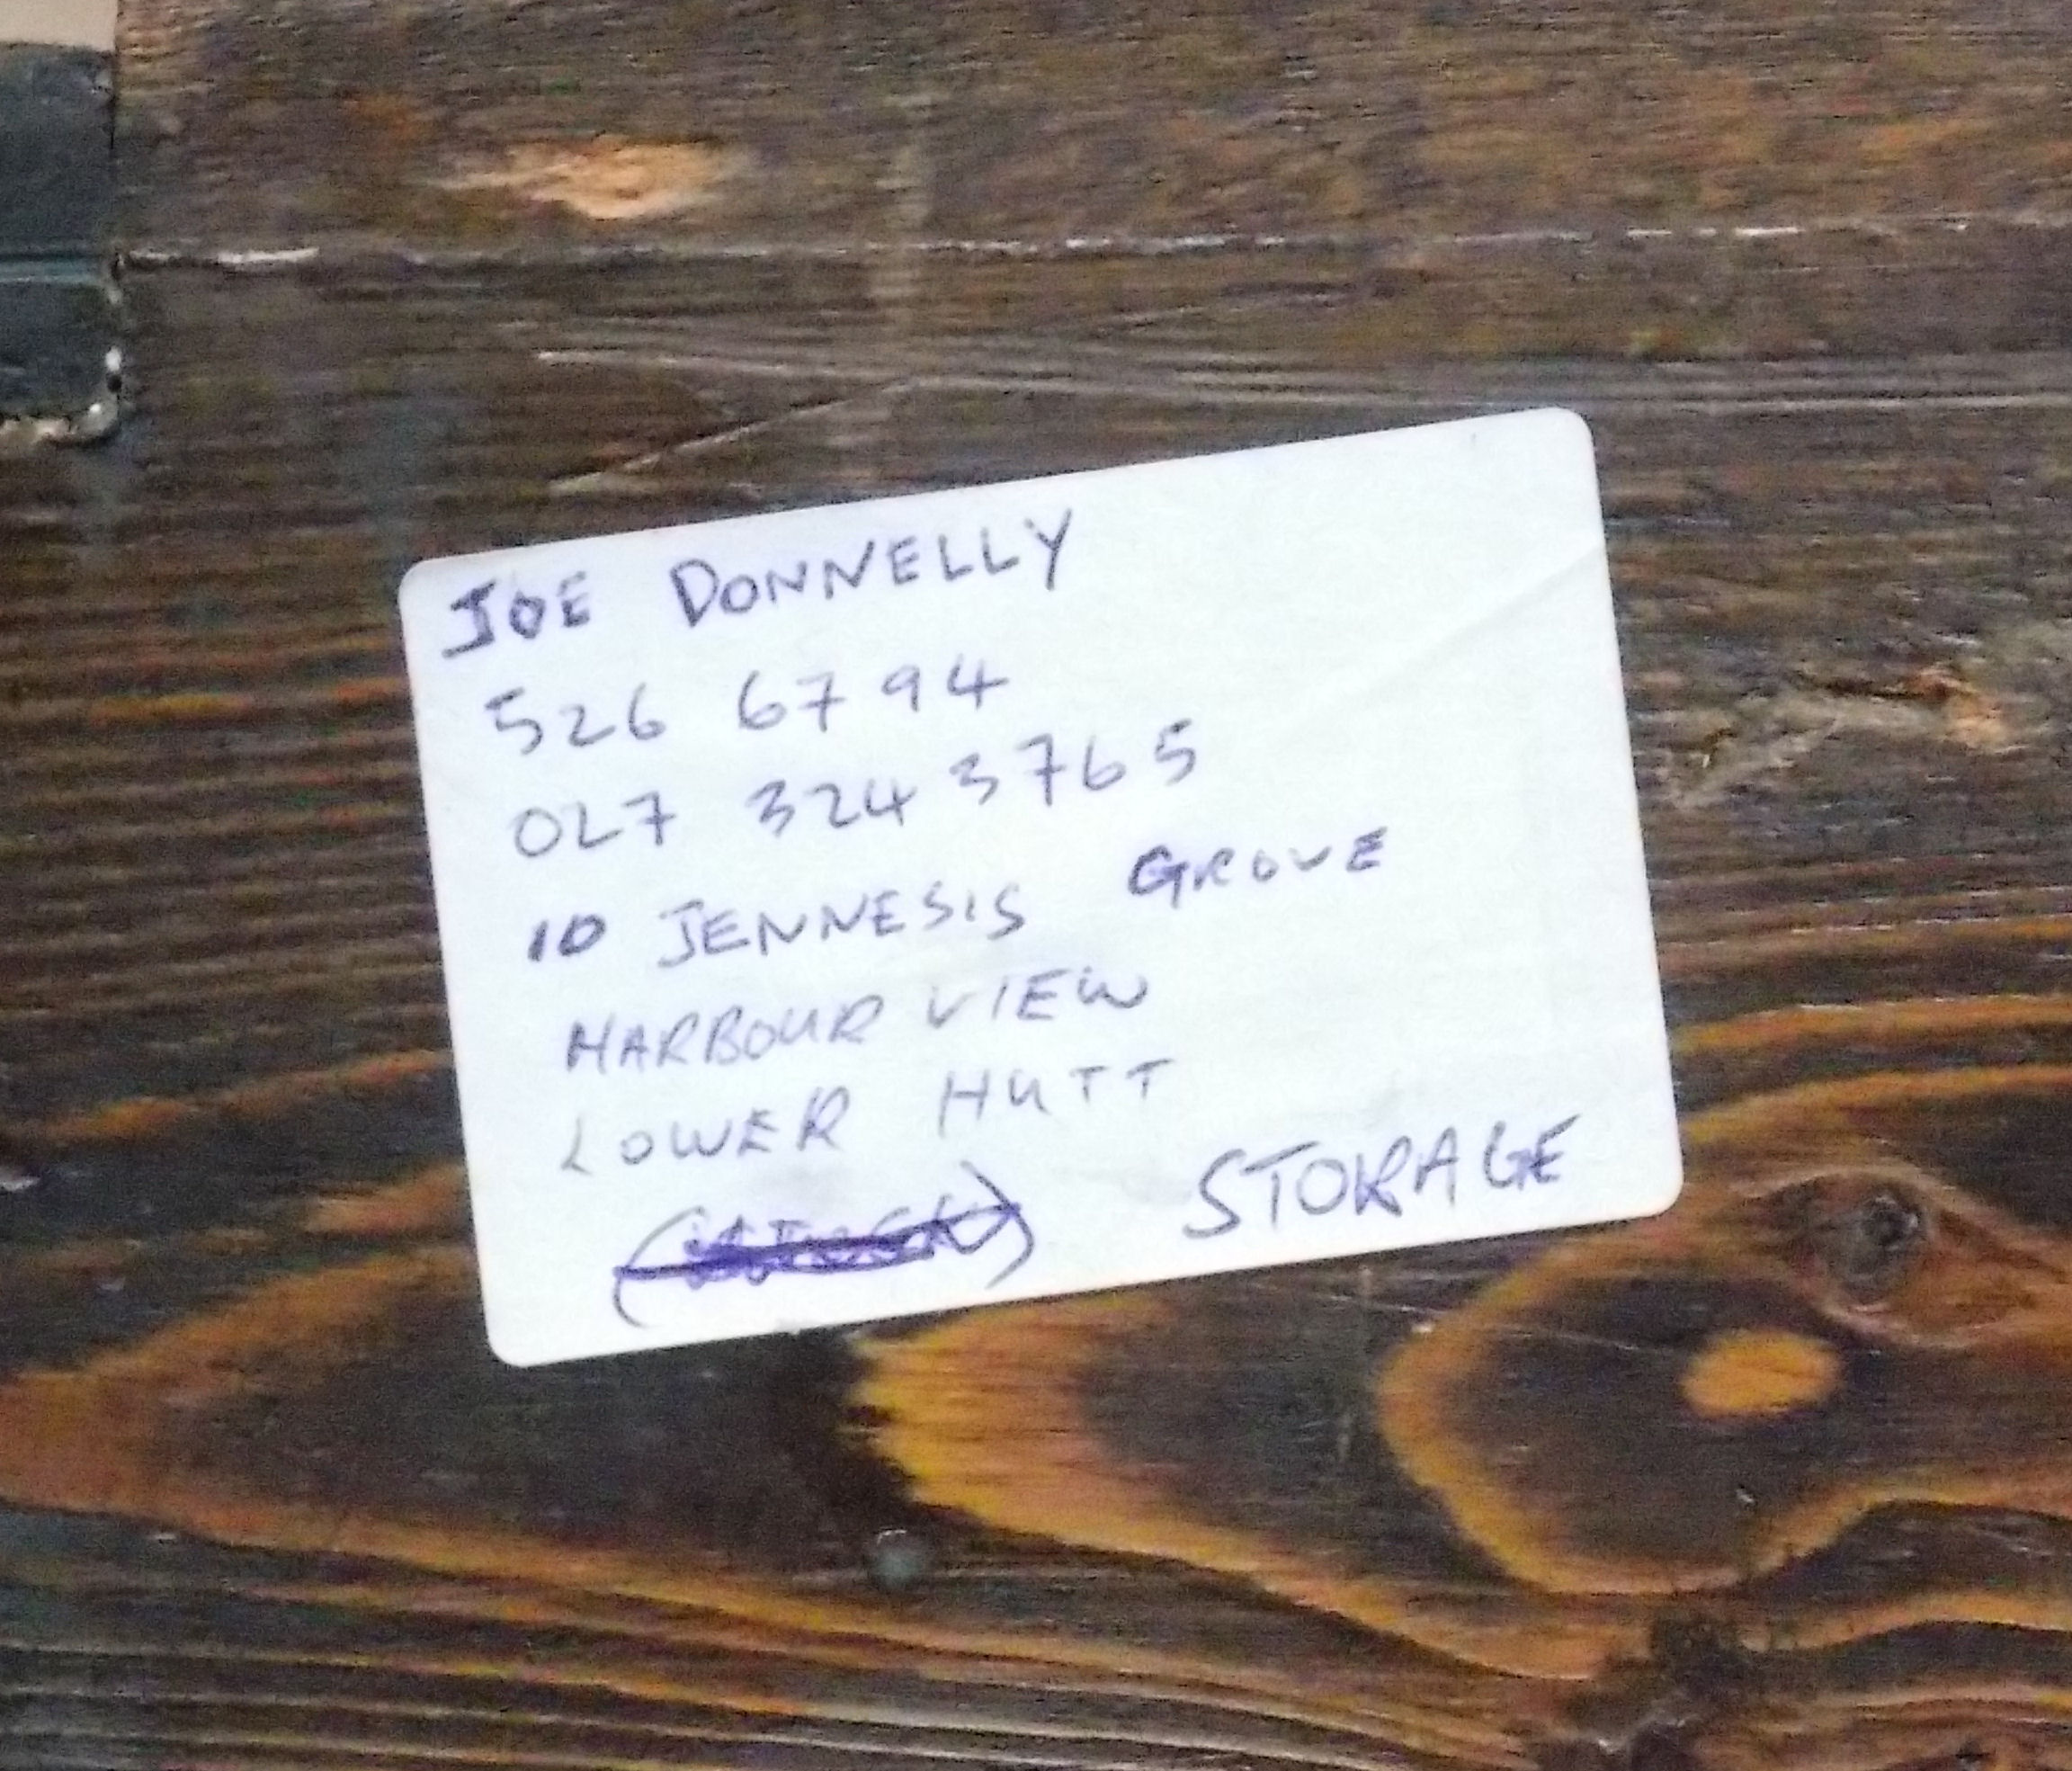 JOE DONNELLY
526 6794
027 324 3765
10 JENNESIS GROVE
HARBOUR VIEW
LOWER HUTT
STORAGE